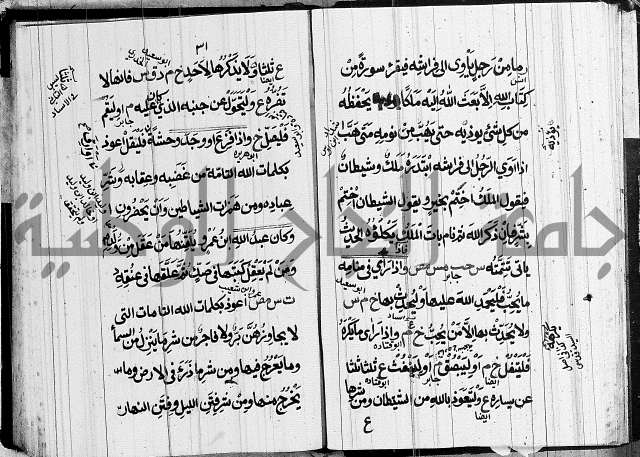 وما من رجل يأوى الى فراشه فيقرء سورة من
كتاب الله الا بعث الله اليه ملكا يحفظه
من كل شئ يؤذيه حتى يهب من نومه متى هب ا
اذا اوى الرجل الى فراشه ابتدره ملك وشيطان
فيقول الملك اختم بخير ويقول الشيطان اختم
بشر فان ذكر الله ثم نام بات الملك يكلؤه الحديث
ياتى تتمته س حب مس مص واذا راى فى منامه
ما يحب فليحمد الله عليها وليحدث بها خ م س
ولا يحدث بها الا من يحب خ م واذا راى ما يكره
فليتفل خ م او ليبصق م او لينفث ع ثلثا ثلثا
عن يساره ع وليتعوذ بالله من الشيطان ومن شرها
ع
٣١
ع ثلثا ولا يذكرها لاحد خ م د ق س فانها لا
تضره ع وليتحول عن جنبه الذى كان عليه م او ليقم
فليصل خ واذا فزع او وجد وحشة فليقل اعوذ
بكلمات الله التامة من غضبه وعقابه وشر
عباده ومن همزات الشياطين وان يحضرون
وكان عبد الله ابن عمرو يلقنها من عقل من ولده
ومن لم يعقل كتبها فى صك ثم علقها فى عنقه د
ت س مص اعوذ بكلمات الله التامات التى
لا يجاوزهن بر ولا فاجر من شر ما ينزل من السماء
وما يعرج فيها ومن شر ما ذرء فى الارض وما
يخرج منها ومن شر فتن الليل وفتن النهار
جامعة النجاح الوطنية